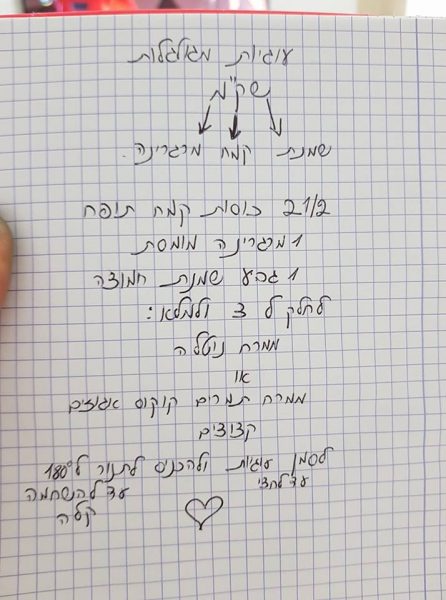 עוגיות מגולגלות
שק"מ
שמנת קמח מרגרינה.
2 1/2 כוסות קמח תופח
1 מרגרינה מומסת
1 גביע שמנת חמוצה
לחלק ל 3 ולמלא:
ממרח נוטלה
או
ממרח תמרים קוקוס אגוזים
קצוצים
לסמן עוגיות ולהכניס לתנור ל 180°
עד לחצי
עד להשחמה
קלה